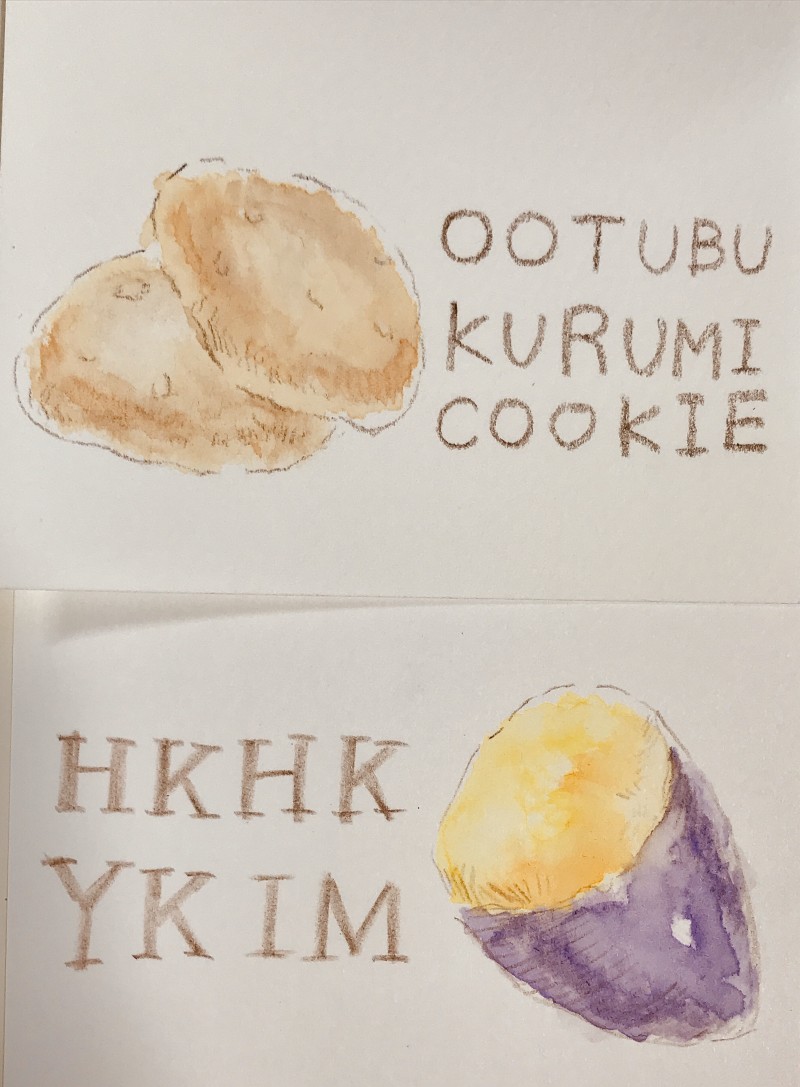 OOTUBU
KURUMI
COOKIE
HKHK
YKIM